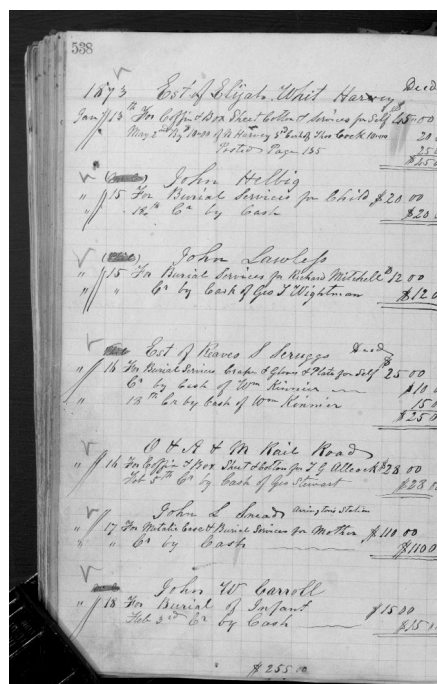 538
1873 Est of Elijah Whit Harvey Decd
Jany 13th For Coffin & Box Sheet Cotton & Services for Self $45.00
May 2nd By 10.00 of Harvey 3rd Cash of Thos Cock 10.00 20
Posted Page 135 25.0
$45.0
John Helbig
" 15 For Burial Services for Child $20.00
" " 18th Cr by Cash $20.
John Lawless
" 15 For Burial Services for Richard Mitchell $12.00
" " Cr by Cash of Geo T Wightman $12.0
Est of Reaves S Scruggs Decd
" 16 For Burial Services Crape & Gloves & Plate for Self $25.00
Cr by Cash of Wm Kinnier $10.
" 18th Cr by Cash of Wm Kinnier 15.0
$25.0
O & A & M Rail Road
" 16 For Coffin & Box Sheet & Cotton for T G Allcock $28.00
Feb 5th Cr by Cash of Geo Stewart $28.0
John L Snead Arringtons Station
" 17 For Metalic Case & Burial Services for Mother $110.00
" " Cr by Cash $110.0
John W Carroll
" 18 For Burial of Infant $15.00
Feb 3rd Cr by Cash $15.0
$255.00